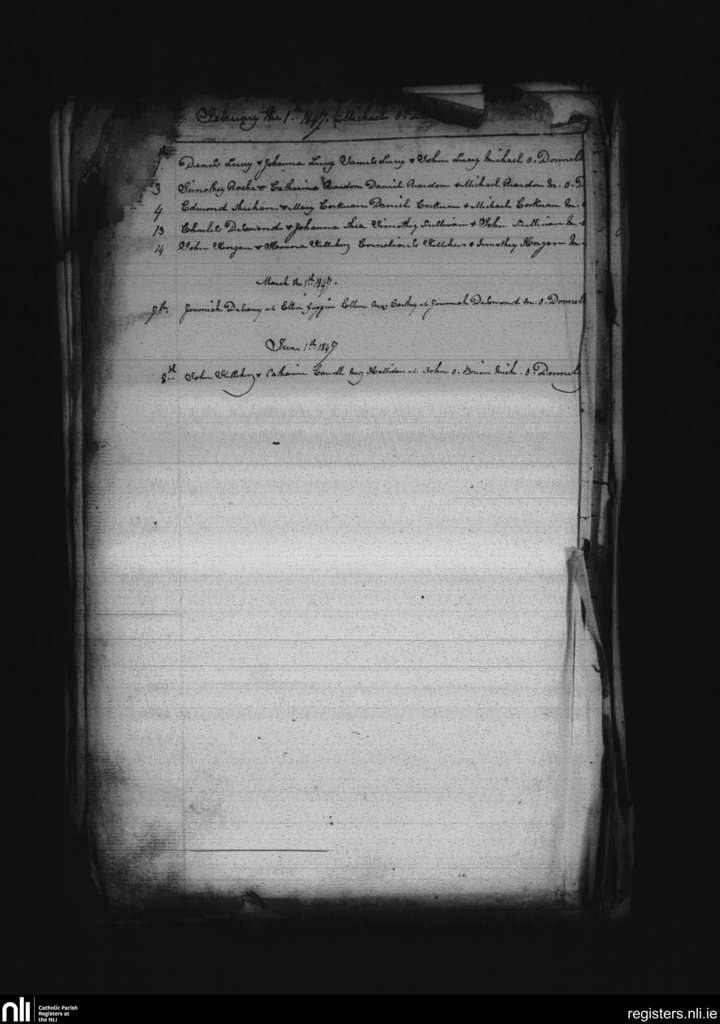 February the 1st 1847. Michael O.
1st Denis Lucy & Johanna Lucy James Lucy & John Lucy Michael O. Donnell
3 Timothy Roche & Catharine Reardon Daniel Reardon & Michael Reardon M. O. D
4 Edmond & Mary Corkeran Daniel Corkeran & Michael Corkeran M.
13 Charles Desmond & Johanna Shea Timothy Sullivan & John Sullivan M.
14 John Horgan & Honora Kelleher Cornelius Kelleher & Timothy Horgan M.
March the 1st 1847.
7th Jeremiah Delany et Ellen Ellen et Jeremiah Desmond M. O. Donnell
June 1st 1847
8th John Kelleher & Catharine Mary et John O. Brien Mich. O. Donnell
nli
Catholic Parish
Registers at
the NLI
registers.nli.ie